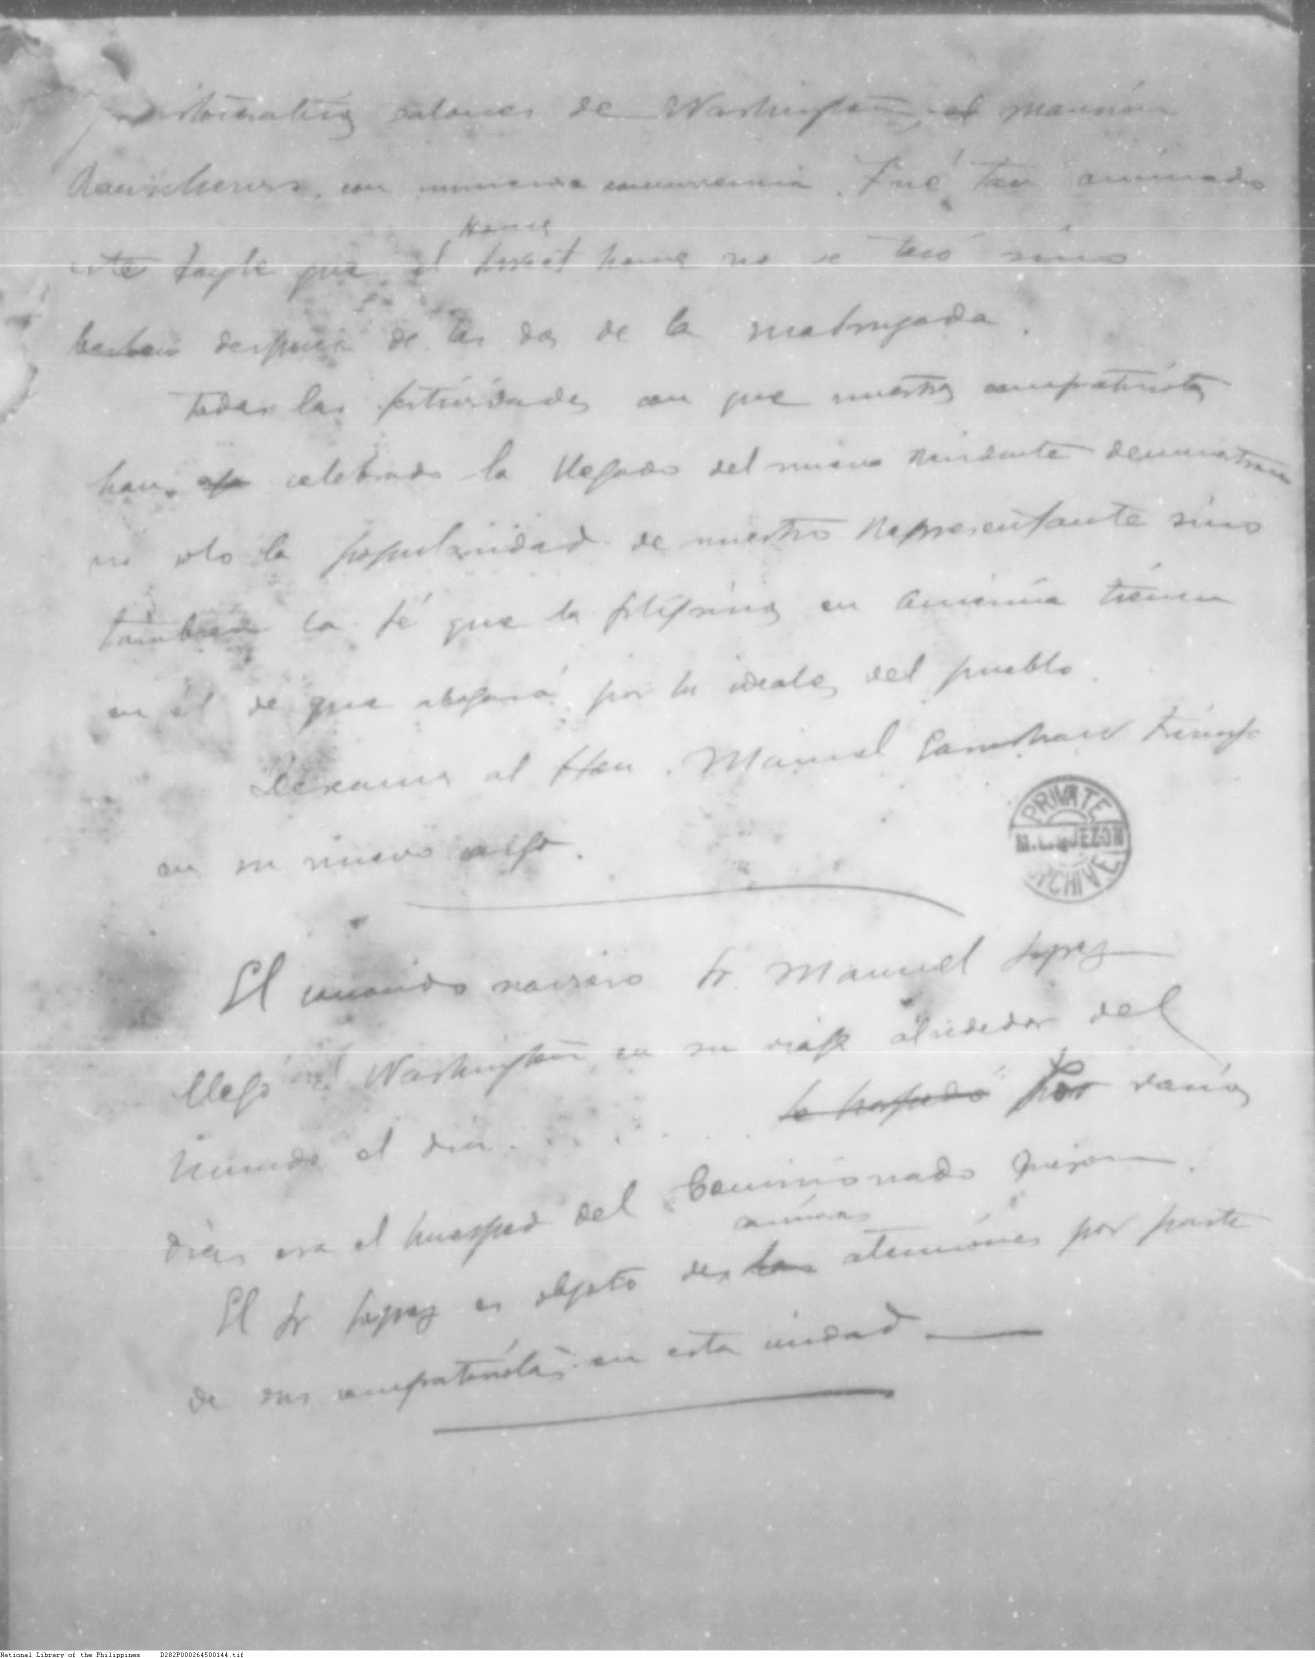 aristocráticos salones de Washington, el mansión
Rauschers, con inmensa concurrencia. Fué tan animado
este baile que el Home sweet home no se tocó sino
hasta después de las dos de la madrugada.
Todas las festividades con que nuestros compatriotas
han celebrado la llegada del nuevo residente demuestran
no solo la popularidad de nuestro Representante sino
también la fé que los filipinos en América tienen
en él de que abogará por los ideales del pueblo.
Deseamos al Hon. Manuel Earnshaw triunfo
en su nuevo cargo.
PRIVATE
M.L. QUEZON
ARCHIVE
El conocido naviero Sr. Manuel Lopez
llegó Washington en su viaje alrededor del
mundo el dia . . . . . . . . . . Por varios
dias era el huesped del Comisionado Quezon.
El Sr Lopez es objeto de atenciones por parte
de sus compatriotas en esta ciudad
National Library of the Philippines D282P000264500144.tif